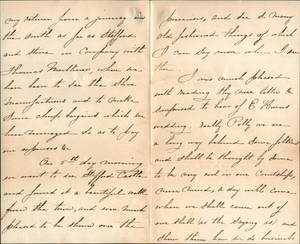 my return from a journey in
the south as far as Stafford
and Stone in company with
Thomas Matthews, where we
have been to see the Shoe
Manufacturers and to make
Some cheap bargains which we
have managed so as to pay
our expenses &
On 5th day morning
we went to see Stafford Castle
and found it a beautiful walk
from the town, and was much
pleased to be shown over the
premises, and see so many
old fashioned things of which
I can say more when I see
thee
I was much pleased
with reading thy nice letter &
surprised to hear of E
wedding, really Polly we are
a long way behind some folks
and shall be thought by some
to be very cool in our Courtship
never mind, a day will come
when we shall come out of
our shell (as the saying is) and
show them how to do business